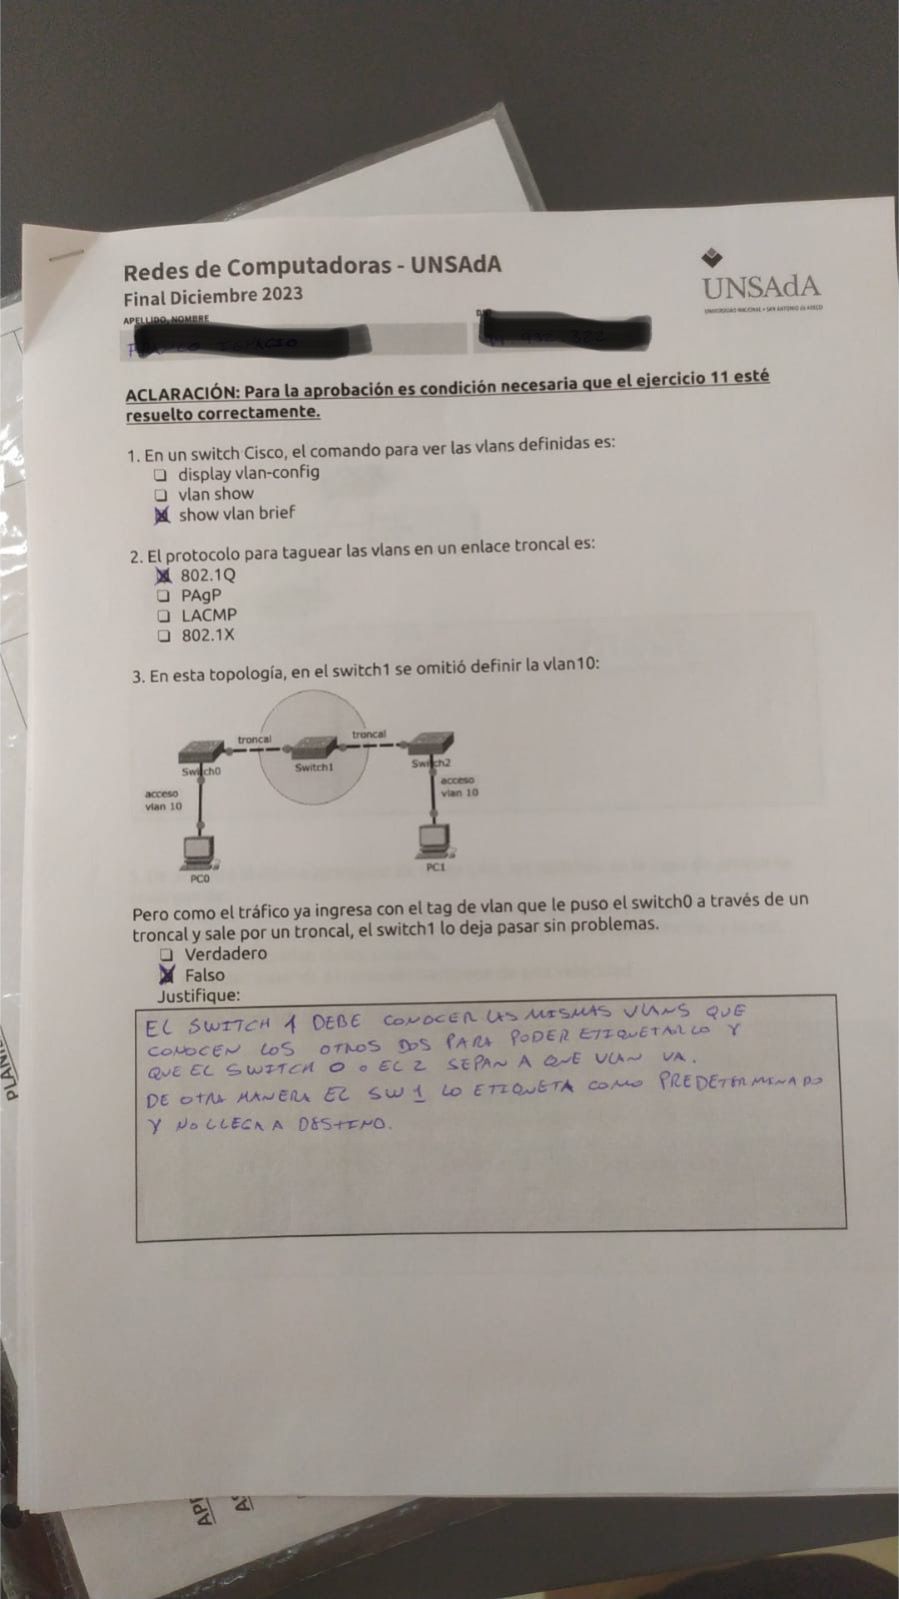 Redes de Computadoras - UNSAdA
Final Diciembre 2023
UNSAdA
UNIVERSIDAD NACIONAL • SAN ANTONIO DE ARECO
APELLIDO, NOMBRE
ACLARACIÓN: Para la aprobación es condición necesaria que el ejercicio 11 esté
resuelto correctamente.
1. En un switch Cisco, el comando para ver las vlans definidas es:
display vlan-config
vlan show
show vlan brief
2. El protocolo para taguear las vlans en un enlace troncal es:
802.1Q
PAgP
LACMP
802.1X
3. En esta topología, en el switch1 se omitió definir la vlan10:
troncal troncal
Switch0 Switch1 Switch2
acceso
vlan 10
acceso
vlan 10
PC0 PC1
Pero como el tráfico ya ingresa con el tag de vlan que le puso el switch0 a través de un
troncal y sale por un troncal, el switch1 lo deja pasar sin problemas.
Verdadero
Falso
Justifique:
EL SWITCH 1 DEBE CONOCER LAS MISMAS VLANS QUE
CONOCEN LOS OTROS DOS PARA PODER ETIQUETARLO Y
QUE EL SWITCH 0 O EL 2 SEPAN A QUE VLAN VA.
DE OTRA MANERA EL SW 1 LO ETIQUETA COMO PREDETERMINADO
Y NO LLEGA A DESTINO.